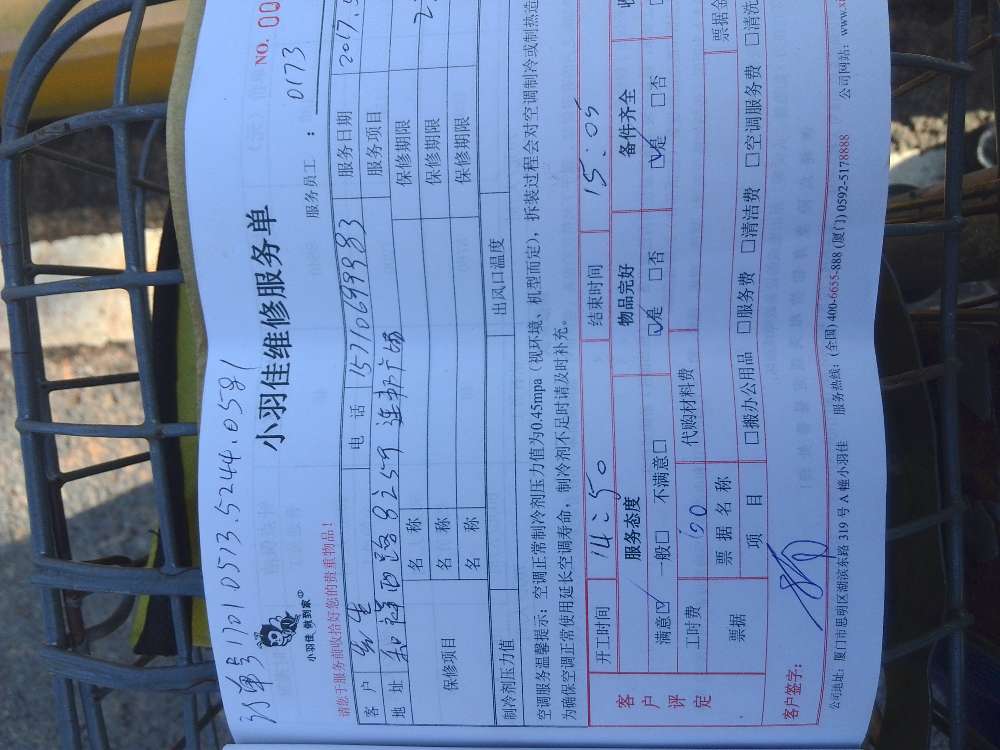 订单号1701 0513.5244.0581
小羽佳 做到家
小羽佳维修服务单
NO. 00
请您于服务前收拾好您的贵重物品!
服务员工: 0173
客 户 电 话 15710699983 服务日期 2017.
地 址 服务项目
保修项目 名 称 保修期限
名 称 保修期限
名 称 保修期限
制冷剂压力值 出风口温度
空调服务温馨提示:空调正常制冷剂压力值为0.45mpa(视环境、机型而定),拆装过程会对空调制冷或制热造
为确保空调正常使用延长空调寿命,制冷剂不足时请及时补充。
客户评定 开工时间 14:50 结束时间 15:05
服务态度 物品完好 备件齐全
满意☑ 一般□ 不满意□ ☑是 □否 ☑是 □否
工时费 代购材料费
票据 票 据 名 称 票据金
项 目 □搬办公用品 □服务费 □清洁费 □空调服务费 □清洗
客户签字:
公司地址:厦门市思明区湖滨东路 319 号 A 幢小羽佳 服务热线:(全国) 400-6655-888 (厦门) 0592-5178888 公司网站:www.xi